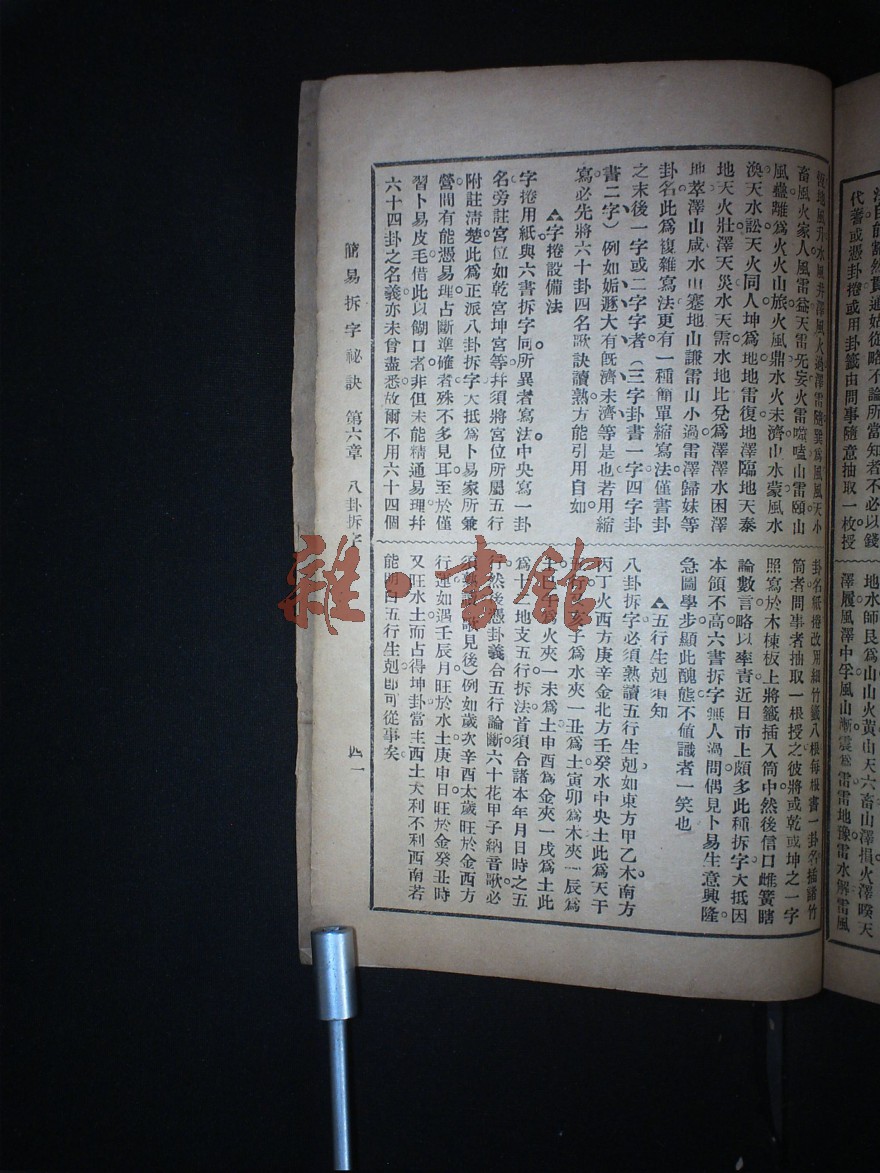 代著或憑卦捲或用卦籤由問事隨意抽取一枚授
地水師艮爲山山火賁山天六畜山澤損火澤暌天
澤履風澤中孚風山漸震爲雷雷地豫雷水解雷風
恆地風升水風井澤風大過澤雷隨巽爲風風天小
畜風火家人風雷益天雷旡妄火雷噬嗑山雷頤山
風蠱離爲火火山旅火風鼎水火未濟山水蒙風水
渙天水訟天火同人坤爲地地雷復地澤臨地天泰
地天火壯澤天災水天需水地比兌爲澤澤水困澤
地萃澤山咸水山蹇地山謙雷山小過雷澤歸妹等
卦名此爲複雜寫法更有一種簡單縮寫法僅書卦
之末後一字或二字字者（三字卦書一字四字卦
書二字）例如姤遯大有旣濟未濟等是也若用縮
寫必先將六十卦四名歌訣讀熟方能引用自如
字捲設備法
字捲用紙與六書拆字同所異者寫法中央寫一卦
名旁註宮位如乾宮坤宮等幷須將宮位所屬五行
附註清楚此爲正派八卦拆字大抵爲卜易家所兼
營間有能憑易理占斷準確者殊不多見耳至於僅
習卜易皮毛借此以餬口者非但未能精通易理幷
六十四卦之名義亦未曾盡悉故爾不用六十四個
卦名紙捲改用細竹籤八根每根書一卦名插諸竹
筒者問事者抽取一根授之彼將或乾或坤之一字
照寫於木棟板上將籤插入筒中然後信口雌簧瞎
論數言略以率責近日市上頗多此種拆字大抵因
本領不高六書拆字無人過問偶見卜易生意興隆
急圖學步顯此醜態不値識者一笑也
五行生剋須知
八卦拆字必須熟讀五行生剋如東方甲乙木南方
丙丁火西方庚辛金北方壬癸水中央土此爲天干
亥子爲水夾一丑爲土寅卯爲木夾一辰爲
土巳午爲火夾一未爲土申酉爲金夾一戌爲土此
爲十二地支五行拆法首須合諸本年月日時之五
行然後憑卦義合五行論斷六十花甲子納音歌必
須熟讀（歌見後）例如歲次辛酉太歲旺於金西方
行運如遇壬辰月旺於水土庚申日旺於金癸丑時
又旺水土而占得坤卦當主西土大利不利西南若
能明白五行生剋卽可從事矣
簡易拆字祕訣　第六章　八卦拆字
四一
雜·書館